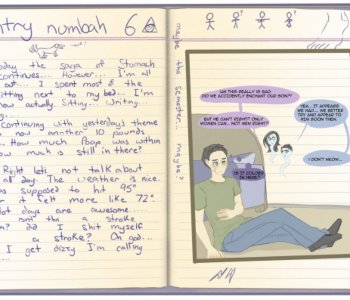 ntry numbah 6
oday the saga of Stomach
continues.... However... I'm all
out... I spent most of the
itting next to my bed... I'm
now actually Sitting. Writing.
Continuing with yesterday's theme
now another 10 pounds
... How much Poop was within
ow much is still in there?
Right let's not talk about
all day. The weather is nice.
as supposed to hit 95°
it felt more like 72°.
Hot days are awesome....
a stroke
did I shit myself
a stroke? Oh god...
I get dizzy I'm calling
maybe tha maybe?
UH THIS REALLY IS BAD.
DID WE ACCIDENTLY ENCHANT OUR SON?!
BUT HE CAN'T RIGHT? ONLY
WOMEN CAN... NOT MEN RIGHT?
YEA... IT APPEARS
WE HAD... WE BETTER
TRY AND APPEAR TO
HIM SOON THEN.
I DON'T KNOW...
IS IT COLDER
IN HERE?